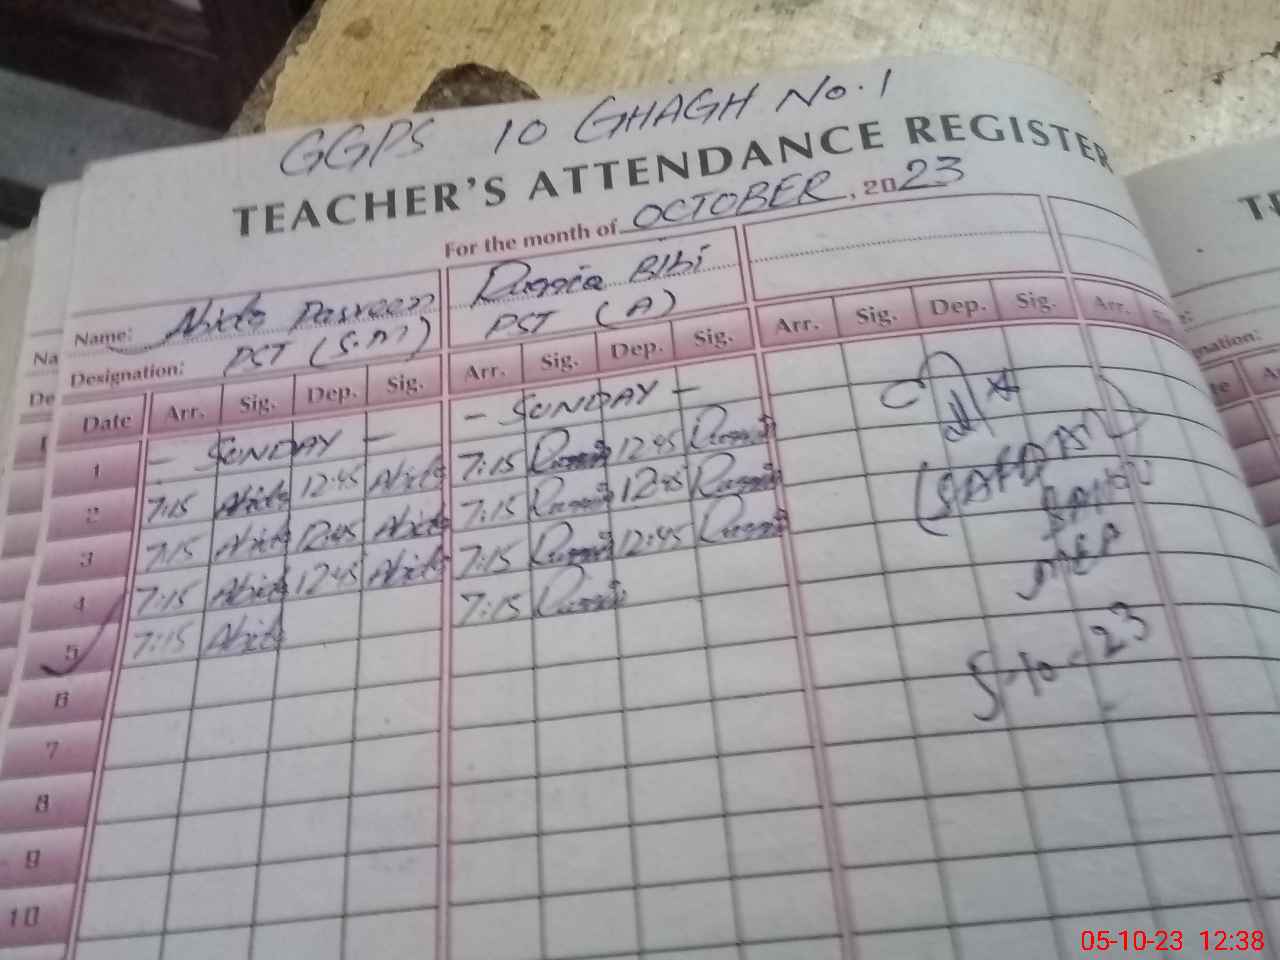 GGPS 10 GHAGH No.1
TEACHER'S ATTENDANCE REGISTER
For the month of OCTOBER, 2023
Name: Abida Parveen
Bibi
Designation: PST
PST (A)
Date Arr. Sig. Dep. Sig. Arr. Sig. Dep. Sig. Arr. Sig. Dep. Sig. Arr.
1 - SUNDAY - - SUNDAY -
2 7:15 Abida 12:45 Abida 7:15 12:45
3 7:15 Abida 12:45 Abida 7:15 12:45
4 7:15 Abida 12:45 Abida 7:15 12:45
5 7:15 Abida 7:15
6
7
8
9
10
5-10-23
Na
De
05-10-23 12:38